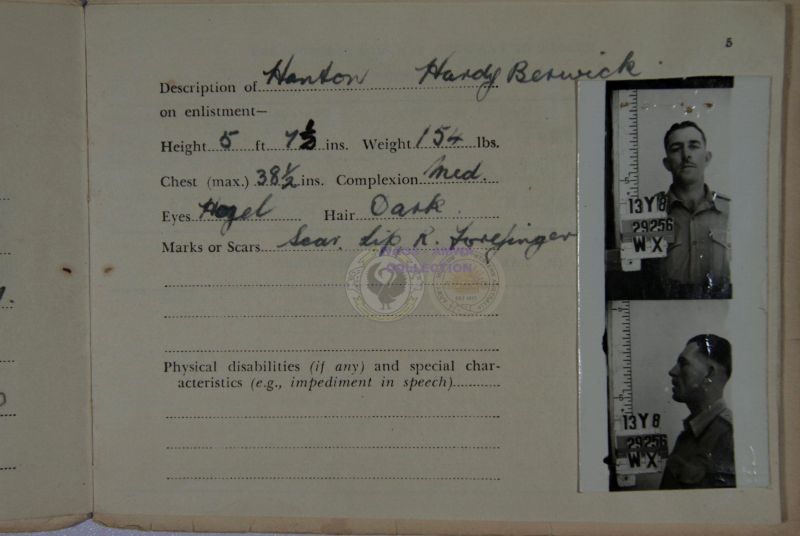 5
Description of Hanton Hardy Berwick
on enlistment—
Height 5 ft 7½ ins. Weight 154 lbs.
Chest (max.) 38½ ins. Complexion Med.
Eyes Hazel Hair Dark
Marks or Scars Scar. tip R. forefinger
COLLECTION
Physical disabilities (if any) and special char-
acteristics (e.g., impediment in speech)
13 Y 8
29256
WX
13 Y 8
29256
WX